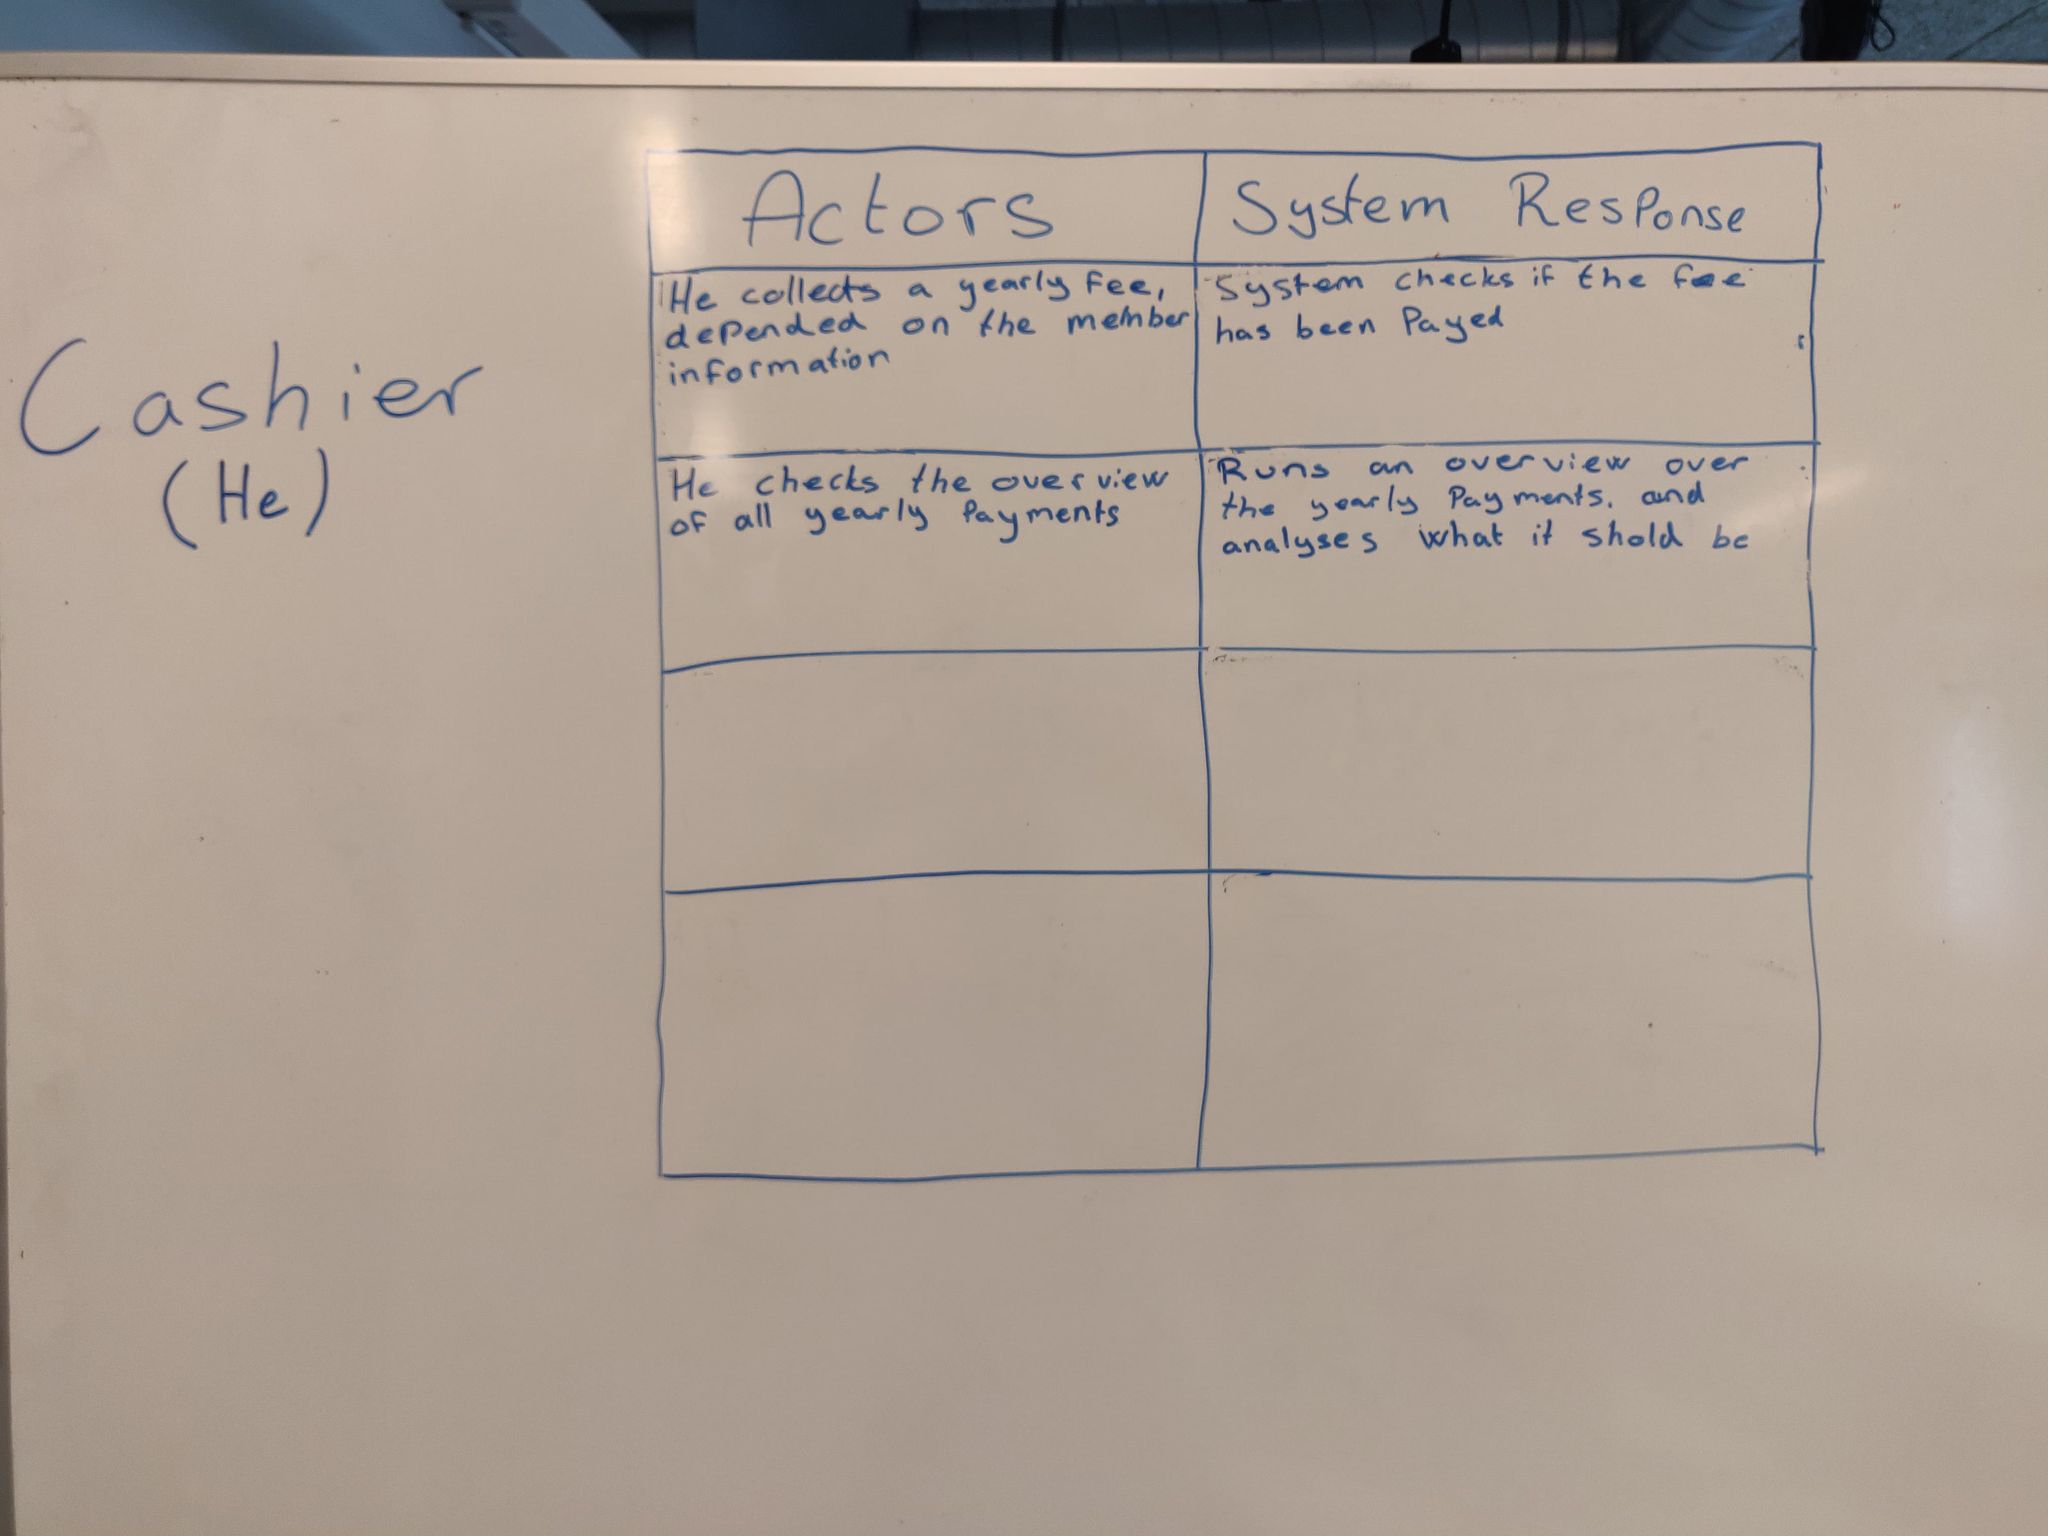 Actors
System Response
He collects a yearly fee,
depended on the member
information
System checks if the fee
has been Payed
Cashier
(He)
He checks the overview
of all yearly Payments
Runs an overview over
the yearly Payments. and
analyses what it shold be